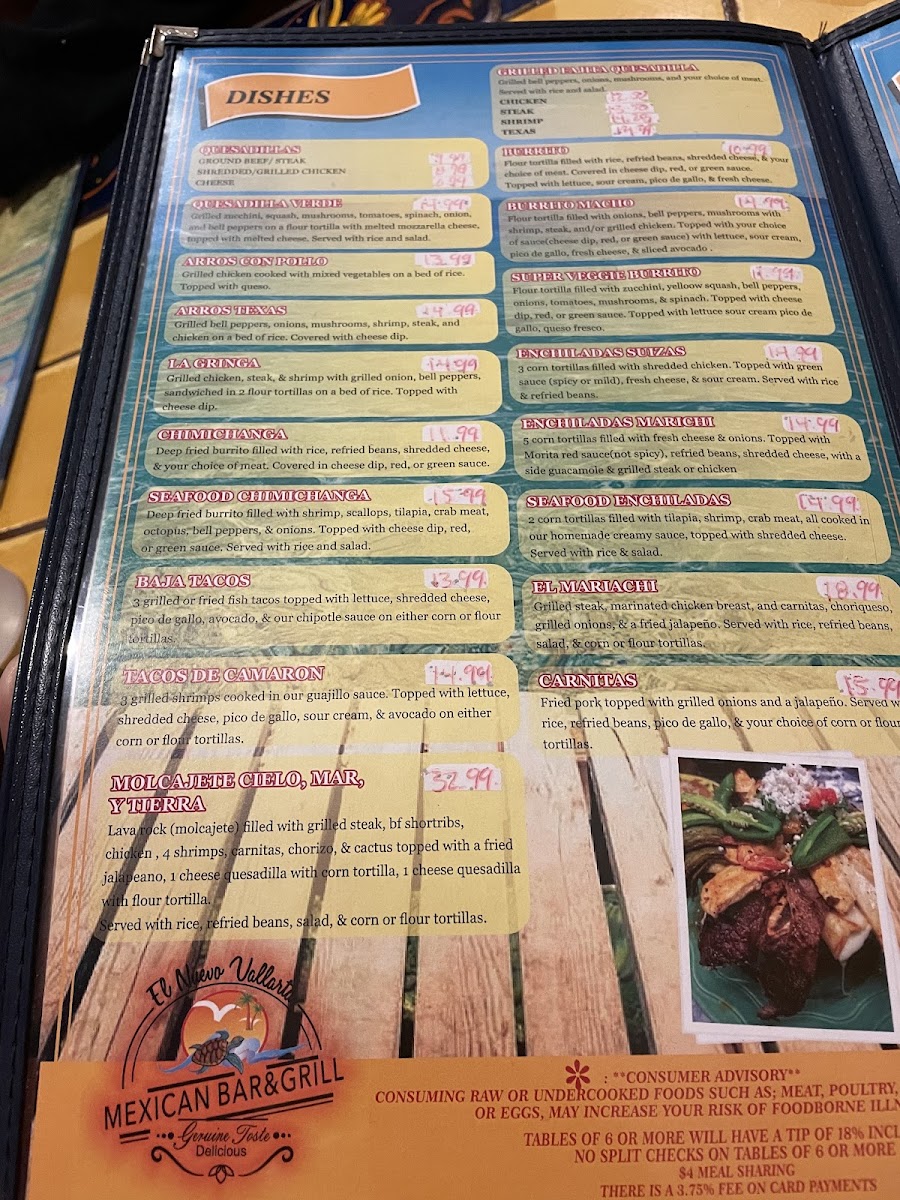 DISHES
QUESADILLAS
GROUND BEEF/ STEAK
SHREDDED/GRILLED CHICKEN
CHEESE
QUESADILLA VERDE 14.99
Grilled zucchini, squash, mushrooms, tomatoes, spinach, onion,
and bell peppers on a flour tortilla with melted mozzarella cheese,
topped with melted cheese. Served with rice and salad.
ARROS CON POLLO 13.99
Grilled chicken cooked with mixed vegetables on a bed of rice.
Topped with queso.
ARROS TEXAS 14.99
Grilled bell peppers, onions, mushrooms, shrimp, steak, and
chicken on a bed of rice. Covered with cheese dip.
LA GRINGA 14.99
Grilled chicken, steak, & shrimp with grilled onion, bell peppers,
sandwiched in 2 flour tortillas on a bed of rice. Topped with
cheese dip.
CHIMICHANGA 11.99
Deep fried burrito filled with rice, refried beans, shredded cheese,
& your choice of meat. Covered in cheese dip, red, or green sauce.
SEAFOOD CHIMICHANGA 15.99
Deep fried burrito filled with shrimp, scallops, tilapia, crab meat,
octopus, bell peppers, & onions. Topped with cheese dip, red,
or green sauce. Served with rice and salad.
BAJA TACOS 13.99
3 grilled or fried fish tacos topped with lettuce, shredded cheese,
pico de gallo, avocado, & our chipotle sauce on either corn or flour
tortillas.
TACOS DE CAMARON 14.99
3 grilled shrimps cooked in our guajillo sauce. Topped with lettuce,
shredded cheese, pico de gallo, sour cream, & avocado on either
corn or flour tortillas.
MOLCAJETE CIELO, MAR,
Y TIERRA 32.99
Lava rock (molcajete) filled with grilled steak, bf shortribs,
chicken , 4 shrimps, carnitas, chorizo, & cactus topped with a fried
jalapeano, 1 cheese quesadilla with corn tortilla, 1 cheese quesadilla
with flour tortilla.
Served with rice, refried beans, salad, & corn or flour tortillas.
GRILLED FAJITA QUESADILLA
Grilled bell peppers, onions, mushrooms, and your choice of meat.
Served with rice and salad.
CHICKEN
STEAK
SHRIMP
TEXAS
BURRITO 10.99
Flour tortilla filled with rice, refried beans, shredded cheese, & your
choice of meat. Covered in cheese dip, red, or green sauce.
Topped with lettuce, sour cream, pico de gallo, & fresh cheese.
BURRITO MACHO 14.99
Flour tortilla filled with onions, bell peppers, mushrooms with
shrimp, steak, and/or grilled chicken. Topped with your choice
of sauce(cheese dip, red, or green sauce) with lettuce, sour cream,
pico de gallo, fresh cheese, & sliced avocado .
SUPER VEGGIE BURRITO
Flour tortilla filled with zucchini, yelloow squash, bell peppers,
onions, tomatoes, mushrooms, & spinach. Topped with cheese
dip, red, or green sauce. Topped with lettuce sour cream pico de
gallo, queso fresco.
ENCHILADAS SUIZAS 14.99
3 corn tortillas filled with shredded chicken. Topped with green
sauce (spicy or mild), fresh cheese, & sour cream. Served with rice
& refried beans.
ENCHILADAS MARICHI 14.99
5 corn tortillas filled with fresh cheese & onions. Topped with
Morita red sauce(not spicy), refried beans, shredded cheese, with a
side guacamole & grilled steak or chicken
SEAFOOD ENCHILADAS 14.99
2 corn tortillas filled with tilapia, shrimp, crab meat, all cooked in
our homemade creamy sauce, topped with shredded cheese.
Served with rice & salad.
EL MARIACHI 18.99
Grilled steak, marinated chicken breast, and carnitas, choriqueso,
grilled onions, & a fried jalapeño. Served with rice, refried beans,
salad, & corn or flour tortillas.
CARNITAS 15.99
Fried pork topped with grilled onions and a jalapeño. Served w
rice, refried beans, pico de gallo, & your choice of corn or flour
tortillas.
El Nuevo Vallarta
MEXICAN BAR&GRILL
Genuine Taste
Delicious
* : **CONSUMER ADVISORY**
CONSUMING RAW OR UNDERCOOKED FOODS SUCH AS; MEAT, POULTRY,
OR EGGS, MAY INCREASE YOUR RISK OF FOODBORNE ILLN
TABLES OF 6 OR MORE WILL HAVE A TIP OF 18% INCL
NO SPLIT CHECKS ON TABLES OF 6 OR MORE
$4 MEAL SHARING
THERE IS A 3.75% FEE ON CARD PAYMENTS